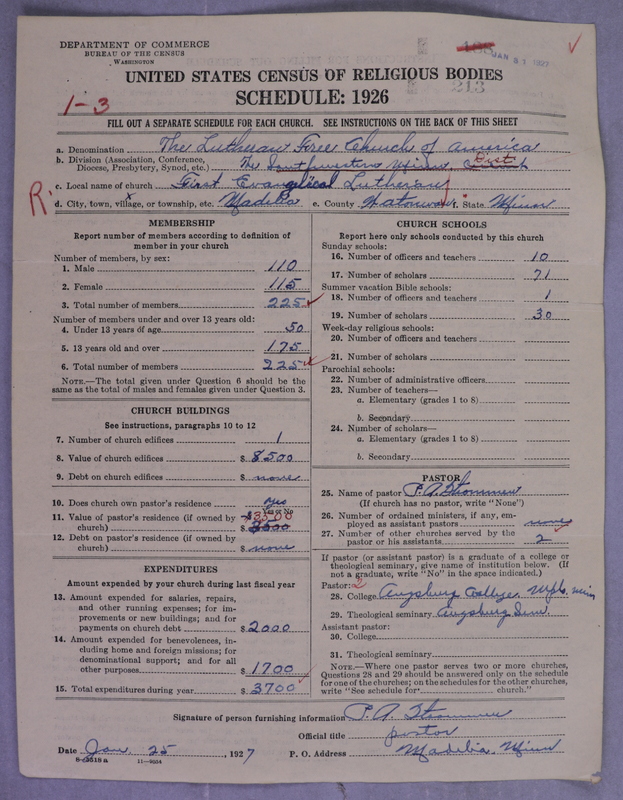 DEPARTMENT OF COMMERCE
BUREAU OF THE CENSUS
WASHINGTON
JAN 31 1927
213
UNITED STATES CENSUS OF RELIGIOUS BODIES
1-3
SCHEDULE: 1926
FILL OUT A SEPARATE SCHEDULE FOR EACH CHURCH. SEE INSTRUCTIONS ON THE BACK OF THIS SHEET
a. Denomination The Lutheran Free Church of America
b. Division (Association, Conference, Diocese, Presbytery, Synod, etc.) The Southwestern Minn.
c. Local name of church First Evangelical Lutheran
R.
d. City, town, village, or township, etc. Madelia e. County Watonwan f. State Minn
MEMBERSHIP
Report number of members according to definition of
member in your church
Number of members, by sex:
1. Male 110
2. Female 115
3. Total number of members 225
Number of members under and over 13 years old:
4. Under 13 years of age 50
5. 13 years old and over 175
6. Total number of members 225
NOTE.—The total given under Question 6 should be the
same as the total of males and females given under Question 3.
CHURCH BUILDINGS
See instructions, paragraphs 10 to 12
7. Number of church edifices 1
8. Value of church edifices $ 8500
9. Debt on church edifices $ none
10. Does church own pastor's residence yes
Yes or No
11. Value of pastor's residence (if owned by
church) $ 3500
12. Debt on pastor's residence (if owned by
church) $ none
EXPENDITURES
Amount expended by your church during last fiscal year
13. Amount expended for salaries, repairs,
and other running expenses; for im-
provements or new buildings; and for
payments on church debt $ 2000
14. Amount expended for benevolences, in-
cluding home and foreign missions; for
denominational support; and for all
other purposes $ 1700
15. Total expenditures during year $ 3700
CHURCH SCHOOLS
Report here only schools conducted by this church
Sunday schools:
16. Number of officers and teachers 10
17. Number of scholars 71
Summer vacation Bible schools:
18. Number of officers and teachers 1
19. Number of scholars 30
Week-day religious schools:
20. Number of officers and teachers
21. Number of scholars
Parochial schools:
22. Number of administrative officers
23. Number of teachers—
a. Elementary (grades 1 to 8)
b. Secondary
24. Number of scholars—
a. Elementary (grades 1 to 8)
b. Secondary
PASTOR
25. Name of pastor P. A. Strommen
(If church has no pastor, write "None")
26. Number of ordained ministers, if any, em-
ployed as assistant pastors none
27. Number of other churches served by the
pastor or his assistants 2
If pastor (or assistant pastor) is a graduate of a college or
theological seminary, give name of institution below. (If
not a graduate, write "No" in the space indicated.)
Pastor: 2
28. College Augsburg College, Mpls, Minn
29. Theological seminary Augsburg Sem.
Assistant pastor:
30. College
31. Theological seminary
NOTE.—Where one pastor serves two or more churches,
Questions 28 and 29 should be answered only on the schedule
for one of the churches; on the schedules for the other churches,
write "See schedule for church."
Signature of person furnishing information P. A. Strommen
Official title pastor
Date Jan 25, 1927 P. O. Address Madelia, Minn
8-3518 a 11-9504